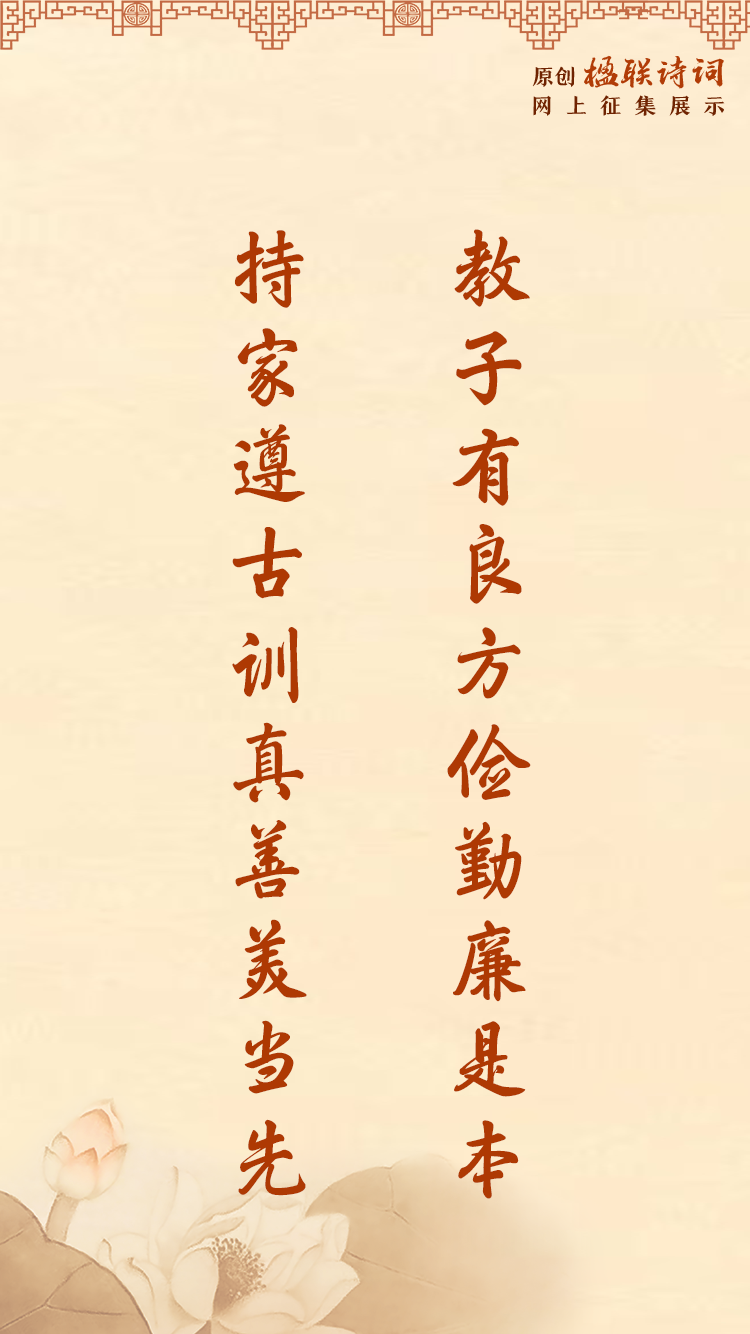 原创 楹联诗词
网上征集展示
教子有良方俭勤廉是本
持家遵古训真善美当先